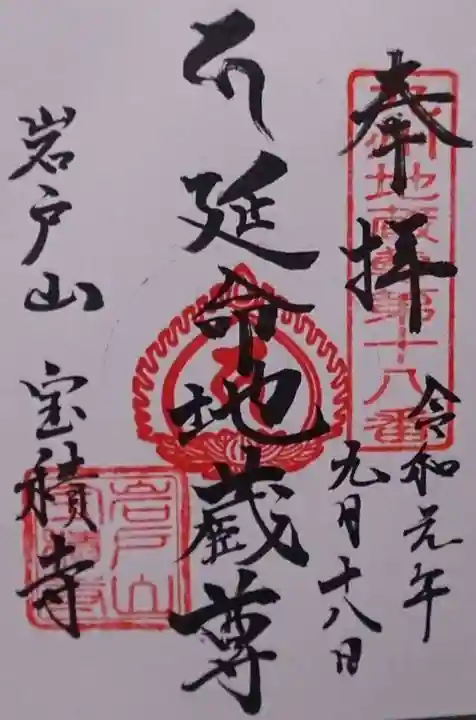 奉拝
令和元年
九月十八日
延命地蔵尊
岩戸山 宝積寺
地蔵尊第十八番
岩戸山